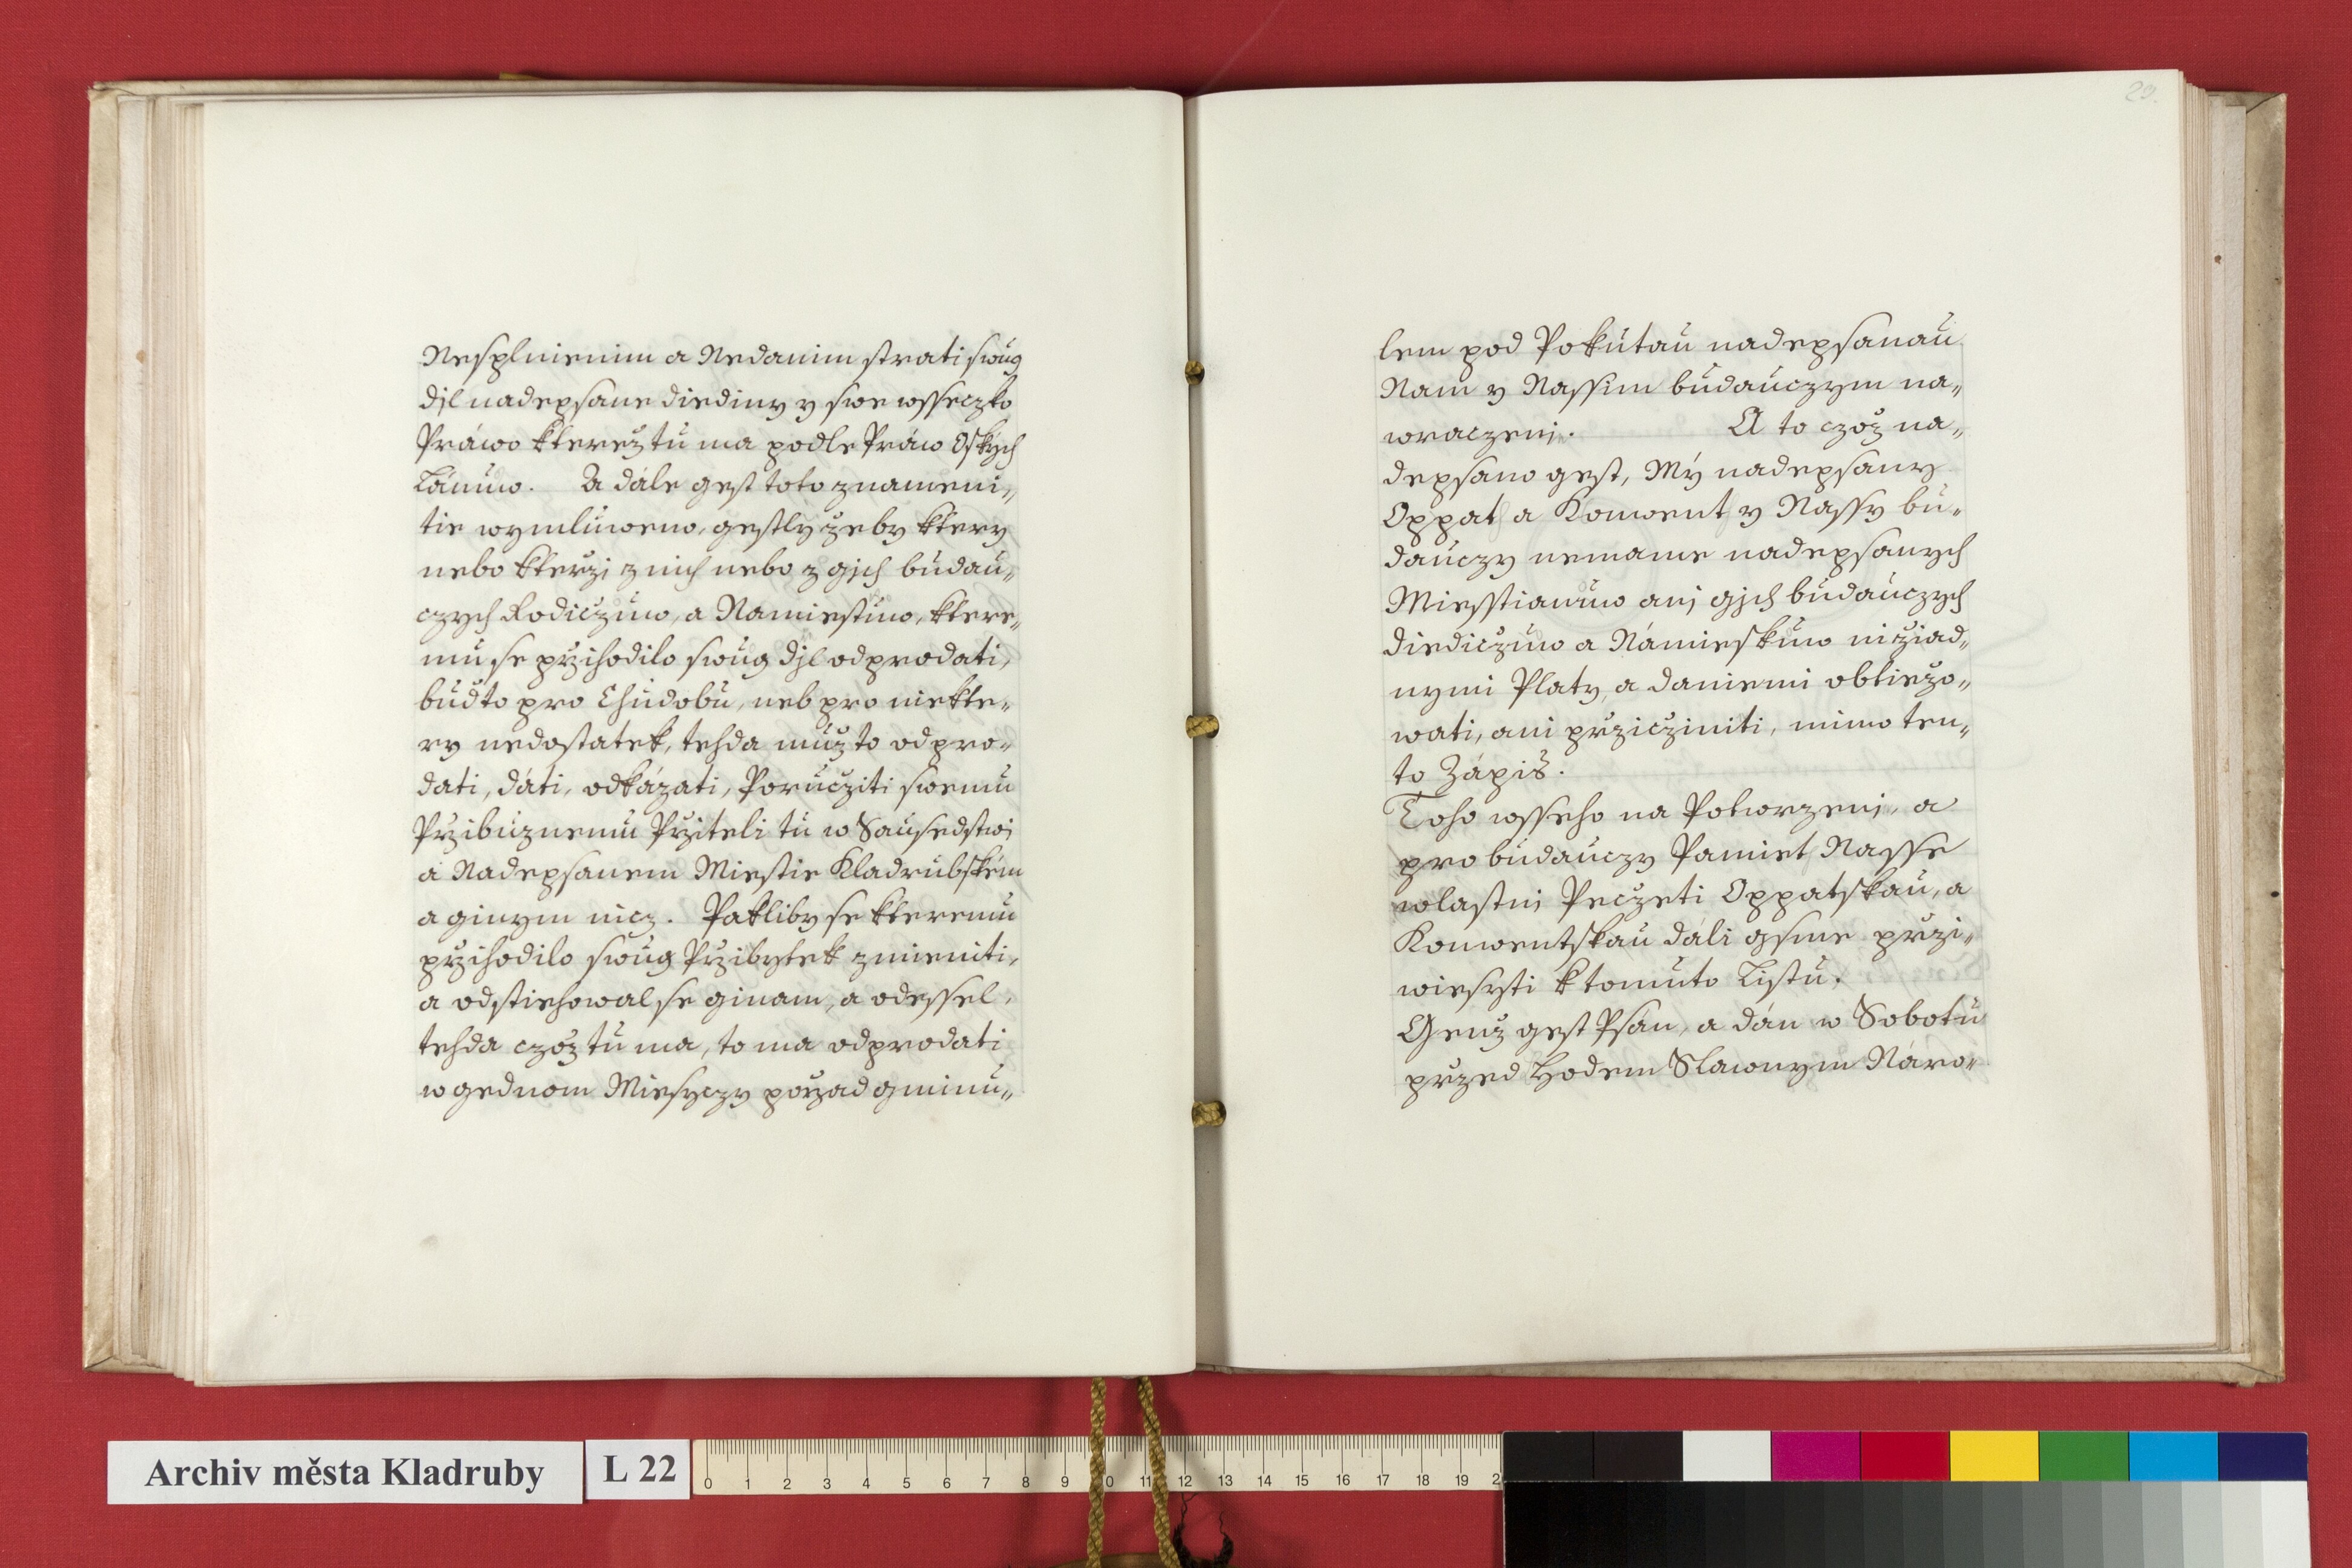 Nesplnienim a Nedanim strati swug
djl nadepsane diediny y swe wsseczko
Práwo kterež tu ma podle Práw Oských
Lánuw. A dále gest toto znameni„
tie wymluweno, gestly žeby ktery
nebo kterži z nich nebo z gjch budau„
czych Rodiczuw, a Namiestkuw, ktere„
mu se pržihodilo swug djl odprodati,
budto pro Chudobu, neb pro niekte„
ry nedostatek, tehda muž to odpro„
dati, dáti, odkázati, Porucziti swemu
Pržibuznemu Pržiteli tu w Sausedstwi
a Nadepsanem Miestie Kladrubském
a ginym nicz. Pakliby se kteremu
pržihodilo swug Pržibytek zmieniti,
a odstiehowal se ginam, a odessel,
tehda czož tu ma, to ma odprodati
w gednom Miesyczy poržad gminu„
23.
lem pod Pokutau nadepsanau
Nam y Nassim budauczym na„
wraczeni. A to czož na„
depsano gest, Mý nadepsany
Oppat a Konwent y Nassy bu„
dauczy nemame nadepsanych
Miesstianuw anj gjch budauczych
diediczuw a Námieskuw nižiad„
nymi Platy, a daniemi obtiežo„
wati, ani pržicziniti, mimo ten„
to Zápis.
Toho wsseho na Potwrzenj, a
pro budauczy Pamiet Nasse
wlastnj Peczeti Oppatskau, a
Konwentskau dáli gsme prži„
wiesyti k tomuto Listu.
Genž gest Psán, a dán w Sobotu
pržed Hodem Slawnym Náro„
Archiv města Kladruby
L 22
0 1 2 3 4 5 6 7 8 9 10 11 12 13 14 15 16 17 18 19 2